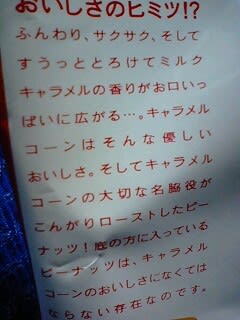 おいしさのヒミツ!?
ふんわり、サクサク、そして
すうっととろけてミルク
キャラメルの香りがお口いっ
ぱいに広がる…。キャラメル
コーンはそんな優しい
おいしさ。そしてキャラメル
コーンの大切な名脇役が
こんがりローストしたピー
ナッツ!底の方に入っている
ピーナッツは、キャラメル
コーンのおいしさになくては
ならない存在なのです。